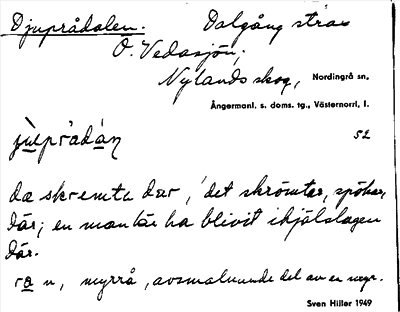 Djuprådalen. Dalgång strax
O. Vedasjön,
Nylands skog, Nordingrå sn,
Ångermanl. s. doms. tg., Västernorrl. l.
52
da skremta dar, 'det skrömtar, spökar
där; en man lär ha blivit ihjälslagen
där.
ra n, myrrå, avsmalnande del av en myr.
Sven Hiller 1949